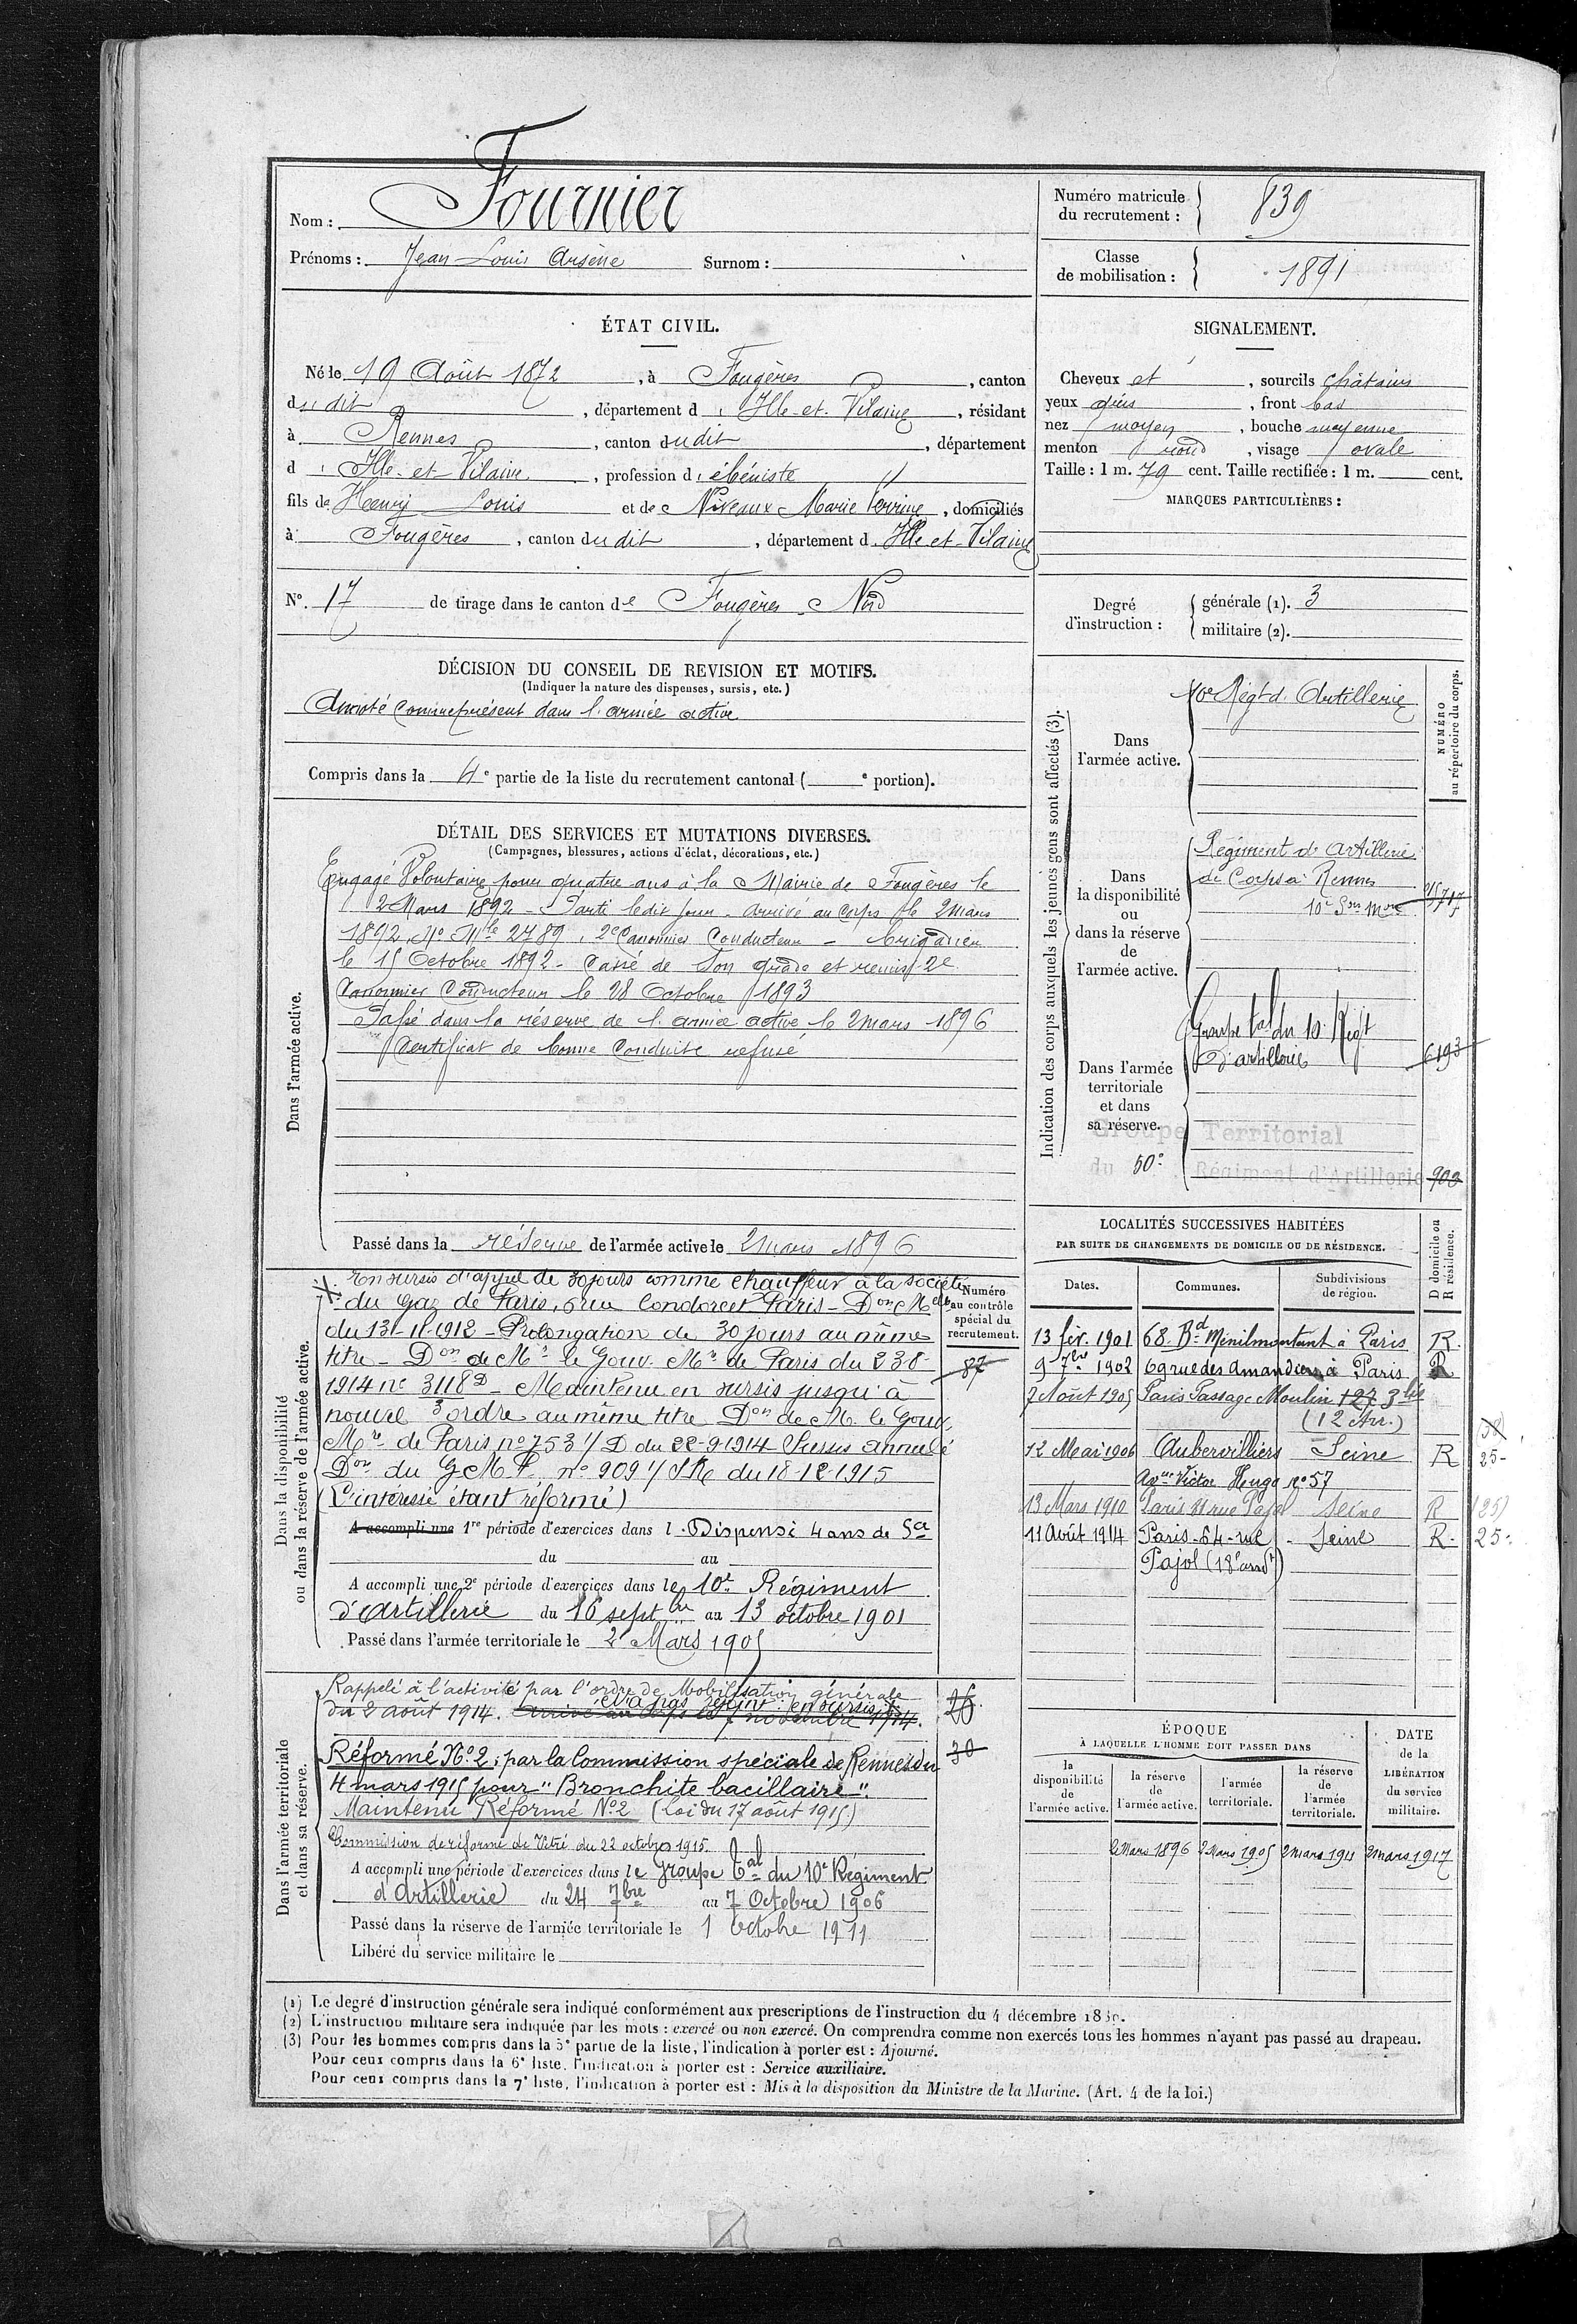 Nom : Fournier
Prénoms : Jean Louis Arsène Surnom :
Numéro matricule du recrutement : 839
Classe de mobilisation : 1891
ÉTAT CIVIL.
Né le 19 Août 1872, à Fougères, canton
dudit, département d'Ille-et-Vilaine, résidant
à Rennes, canton dudit, département
d'Ille-et-Vilaine, profession d'ébéniste
fils de Henry Louis et de Niveaux Marie Perrine, domiciliés
à Fougères, canton dudit, département d'Ille-et-Vilaine
N° 17 de tirage dans le canton de Fougères Nord
SIGNALEMENT.
Cheveux et, sourcils châtains
yeux gris, front bas
nez moyen, bouche moyenne
menton rond, visage ovale
Taille : 1 m. 79 cent. Taille rectifiée : 1 m. cent.
MARQUES PARTICULIÈRES :
Degré d'instruction : générale (1). 3
militaire (2).
DÉCISION DU CONSEIL DE REVISION ET MOTIFS.
(Indiquer la nature des dispenses, sursis, etc.)
Annoté comme présent dans l'armée active
Compris dans la 4e partie de la liste du recrutement cantonal ( e portion).
DÉTAIL DES SERVICES ET MUTATIONS DIVERSES.
(Campagnes, blessures, actions d'éclat, décorations, etc.)
Dans l'armée active.
Engagé Volontaire pour quatre ans à la Mairie de Fougères le
2 Mars 1892 - Parti ledit jour - arrivé au Corps le 2 mars
1892, No Mle 2789, 2e Canonnier Conducteur - brigadier
le 15 Octobre 1892 - Cassé de son grade et remis 2e
Canonnier Conducteur le 28 Octobre 1893
Passé dans la réserve de l'armée active le 2 mars 1896
Certificat de bonne Conduite refusé
Passé dans la réserve de l'armée active le 2 mars 1896
Indication des corps auxquels les jeunes gens sont affectés (3).
NUMÉRO au répertoire du corps.
Dans l'armée active.
10e Régt d'Artillerie
Dans la disponibilité ou dans la réserve de l'armée active.
Régiment d'Artillerie
de Corps à Rennes
10e Son Mre
Dans l'armée territoriale et dans sa réserve.
Groupe tal du 10. Régt
d'artillerie 6193
Groupe Territorial
du 50e Régiment d'Artillerie 903
Dans la disponibilité ou dans la réserve de l'armée active.
En sursis d'appel de 30 jours comme chauffeur à la société
du Gaz de Paris, 6 rue Condorcet Paris - Don Melle
du 131-11-1912 - Prolongation de 30 jours au même
titre - Don de Mr le Gouv. Mre de Paris du 23 8-
1914 no 3118D - Maintenu en sursis jusqu'à
nouvel ordre au même titre Don de M. le Gouv.
Mre de Paris no 753 1/D du 22-9-1914 Sursis annulé
Don du G.M.P. no 909 1/ du 18-12-1915
(L'intéressé étant réformé)
Numéro au contrôle spécial du recrutement.
87
A accompli une 1re période d'exercices dans l Dispensé 4 ans de Sce
du au
A accompli une 2e période d'exercices dans le 10e Régiment
d'Artillerie du 16 septbre au 13 octobre 1901
Passé dans l'armée territoriale le 2 Mars 1905
LOCALITÉS SUCCESSIVES HABITÉES
PAR SUITE DE CHANGEMENTS DE DOMICILE OU DE RÉSIDENCE.
D domicile ou R résidence.
Dates. Communes. Subdivisions de région.
13 fév. 1901 68. Bd Ménilmontant à Paris R.
9 7bre 1902 69 rue des Amandiers à Paris R
7 Août 1905 Paris Passage Moulin 127 3bis
(12 Arr.)
12 Mai 1906 Aubervilliers Seine R 25-
Avue Victor Hugo no 57
13 Mars 1910 Paris rue Pajol Seine R (25)
11 Août 1914 Paris - 64 - rue Seine R. 25
Pajol (18e arrdt)
Dans l'armée territoriale et dans sa réserve.
Rappelé à l'activité par l'ordre de Mobilisation générale
du 2 août 1914. arrivé au corps le 7 novembre 1914.
N'a pas rejoint : en sursis
Réformé No 2 ; par la Commission spéciale de Rennes du
4 mars 1915 pour "Bronchite bacillaire".
Maintenu Réformé No 2 (Loi du 17 août 1915.)
Commission de réforme de Vitré du 22 octobre 1915.
30
A accompli une période d'exercices dans le Groupe Tal du 10e Régiment
d'Artillerie du 24 7bre au 7 Octobre 1906
Passé dans la réserve de l'armée territoriale le 1 Octobre 1911
Libéré du service militaire le
ÉPOQUE
À LAQUELLE L'HOMME DOIT PASSER DANS
DATE de la LIBÉRATION du service militaire.
la disponibilité de l'armée active. la réserve de l'armée active. l'armée territoriale. la réserve de l'armée territoriale.
2 Mars 1896 2 Mars 1905 2 mars 1911 2 mars 1917
(1) Le degré d'instruction générale sera indiqué conformément aux prescriptions de l'instruction du 4 décembre
(2) L'instruction militaire sera indiquée par les mots : exercé ou non exercé. On comprendra comme non exercés tous les hommes n'ayant pas passé au drapeau.
(3) Pour les hommes compris dans la 5e partie de la liste, l'indication à porter est : Ajourné.
Pour ceux compris dans la 6e liste, l'indication à porter est : Service auxiliaire.
Pour ceux compris dans la 7e liste, l'indication à porter est : Mis à la disposition du Ministre de la Marine. (Art. 4 de la loi.)